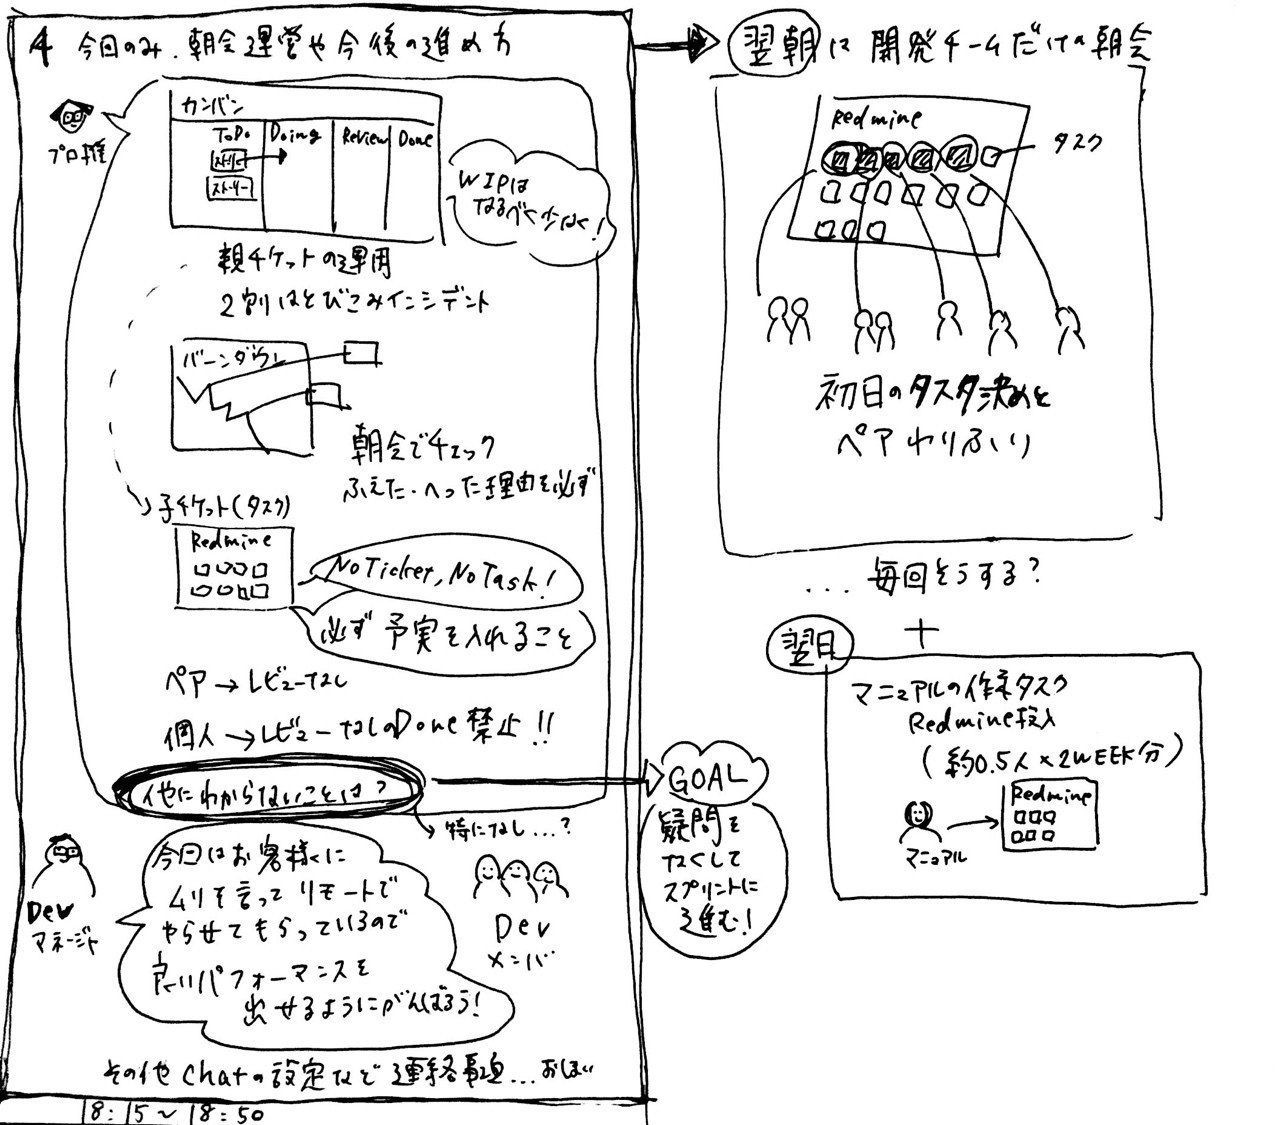 4 今日のみ.朝会運営や今後の進め方
プロ推
カンバン
ToDo Doing Review Done
ストーリー
ストーリー
WIPは
なるべく少なく!
親チケットの運用
2割はとびこみインシデント
バーンダウン
朝会でチェック
ふえた・へった理由を必ず
子チケット(タスク)
Redmine
No Ticket, No Task!
必ず予実を入れること
ペア→レビューなし
個人→レビューなしのDone禁止!!
他にわからないことは?
特になし...?
Dev
マネージャ
今日はお客様に
ムリを言ってリモートで
やらせてもらっているので
良いパフォーマンスを
出せるようにがんばろう!
Dev
メンバ
その他chatの設定など連絡事項...
18:15〜18:50
GOAL
疑問を
なくして
スプリントに
進む!
翌朝に開発チームだけの朝会
Redmine
タスク
初日のタスク決めと
ペアわりふり
...毎回そうする?
+
翌日
マニュアルの作業タスク
Redmine投入
(約0.5人×2WEEK分)
Redmine
マニュアル